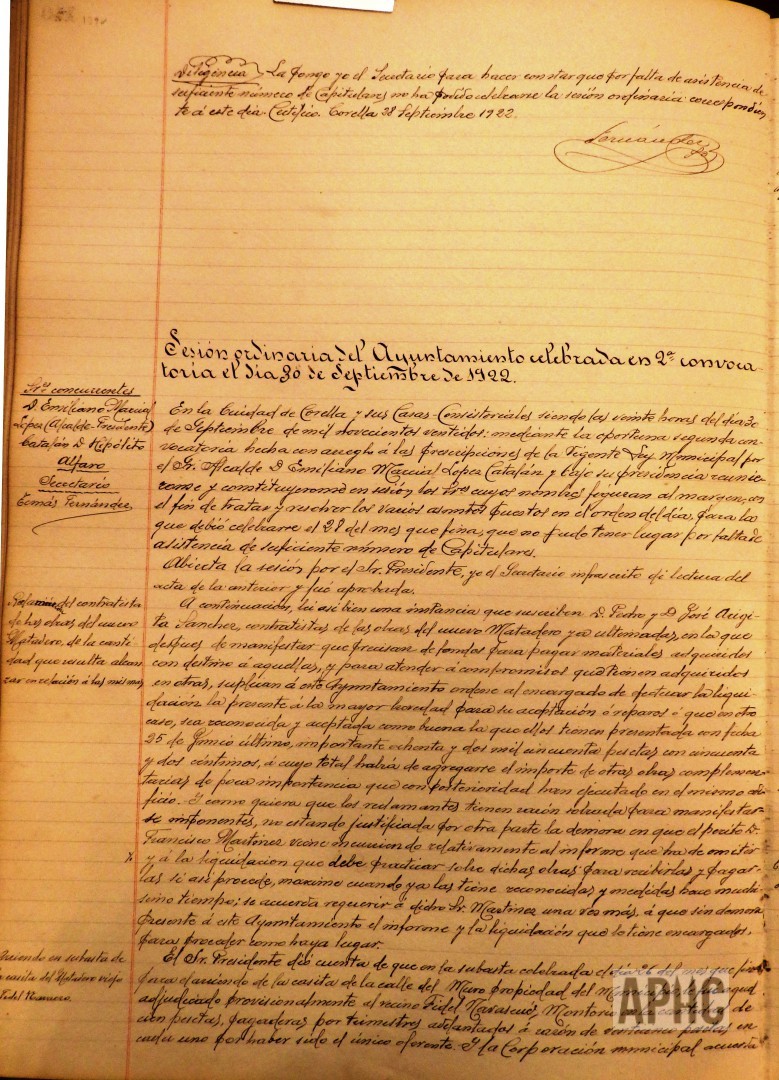 Diligencia La pongo yo el Secretario para hacer constar que por falta de asistencia de
suficiente número de Capitulares no ha podido celebrarse la sesión ordinaria correspondien
te á este dia. Certifico. Corella 28 Septiembre 1922.
Fernández
Sesión ordinaria del Ayuntamiento celebrada en 2ª convoca
toria el día 30 de Septiembre de 1922.
Sres concurrentes
D. Emiliano Marcial
Lopez (Alcalde-Presidente)
Catalán D. Hipólito
Alfaro
Secretario
Tomás Fernández
En la Ciudad de Corella y sus Casas-Consistoriales siendo las veinte horas del dia 30
de Septiembre de mil novecientos ventidos: mediante la oportuna segunda con
vocatoria hecha con arreglo á las prescripciones de la vigente Ley Municipal por
el Sr. Alcalde D. Emiliano Marcial Lopez Catalán y bajo su presidencia reunie
ronse y constituyeronse en sesión los Sres cuyos nombres figuran al margen, con
el fin de tratar y resolver los varios asuntos puestos en el orden del dia, para la
que debió celebrarse el 28 del mes que fina, que no pudo tener lugar por falta de
asistencia de suficiente número de Capitulares.
Abierta la sesión por el Sr. Presidente, yo el Secretario infrascrito di lectura del
acta de la anterior y fué aprobada.
del contratista
de las obras del nuevo
Matadero, de la canti
dad que resulta alcan
zar en relación á las mismas
A continuación, lei asi bien una instancia que suscriben D. Pedro y D. José
Sanchez, contratistas de las obras del nuevo Matadero ya ultimadas, en la que
despues de manifestar que precisan de fondos para pagar materiales adquiridos
con destino á aquellas, y para atender á compromisos que tienen adquiridos
en otras, suplican á este Ayuntamiento ordene al encargado de efectuar la liqui
dación la presente á la mayor brevedad para su aceptación ó reparos ó que en otro
caso, sea reconocida y aceptada como buena la que ellos tienen presentada con fecha
25 de Junio último, importante ochenta y dos mil cincuenta pesetas con cincuenta
y dos céntimos, á cuyo total habia de agregarse el importe de otras obras complemen
tarias de poca importancia que con posterioridad han ejecutado en el mismo edi
ficio. Y como quiera que los reclamantes tienen razón sobrada para manifestar
se imponentes, no estando justificada por otra parte la demora en que el perito D.
Francisco Martinez viene incurriendo relativamente al informe que ha de emitir
y á la liquidación que debe practicar sobre dichas obras para recibirlas y pagar
las si asi procede, maxime cuando ya las tiene reconocidas y medidas hace muchi
simo tiempo; se acuerda requerir á dicho Sr. Martinez una vez más, á que sin demora
presente á este Ayuntamiento el informe y la liquidación que le tiene encargados,
para proceder como haya lugar.
en subasta de
casita del Matadero viejo
Fidel Navascués
El Sr. Presidente dió cuenta de que en la subasta celebrada el dia 26 del mes que fina
para el arriendo de la casita de la calle del Muro propiedad del
adjudicado provisionalmente al vecino Fidel Navascués Montorio
cien pesetas, pagaderas por trimestres adelantados á razón de pesetas en
cada uno por haber sido el único oferente. Y la Corporación municipal acuerda
APHC